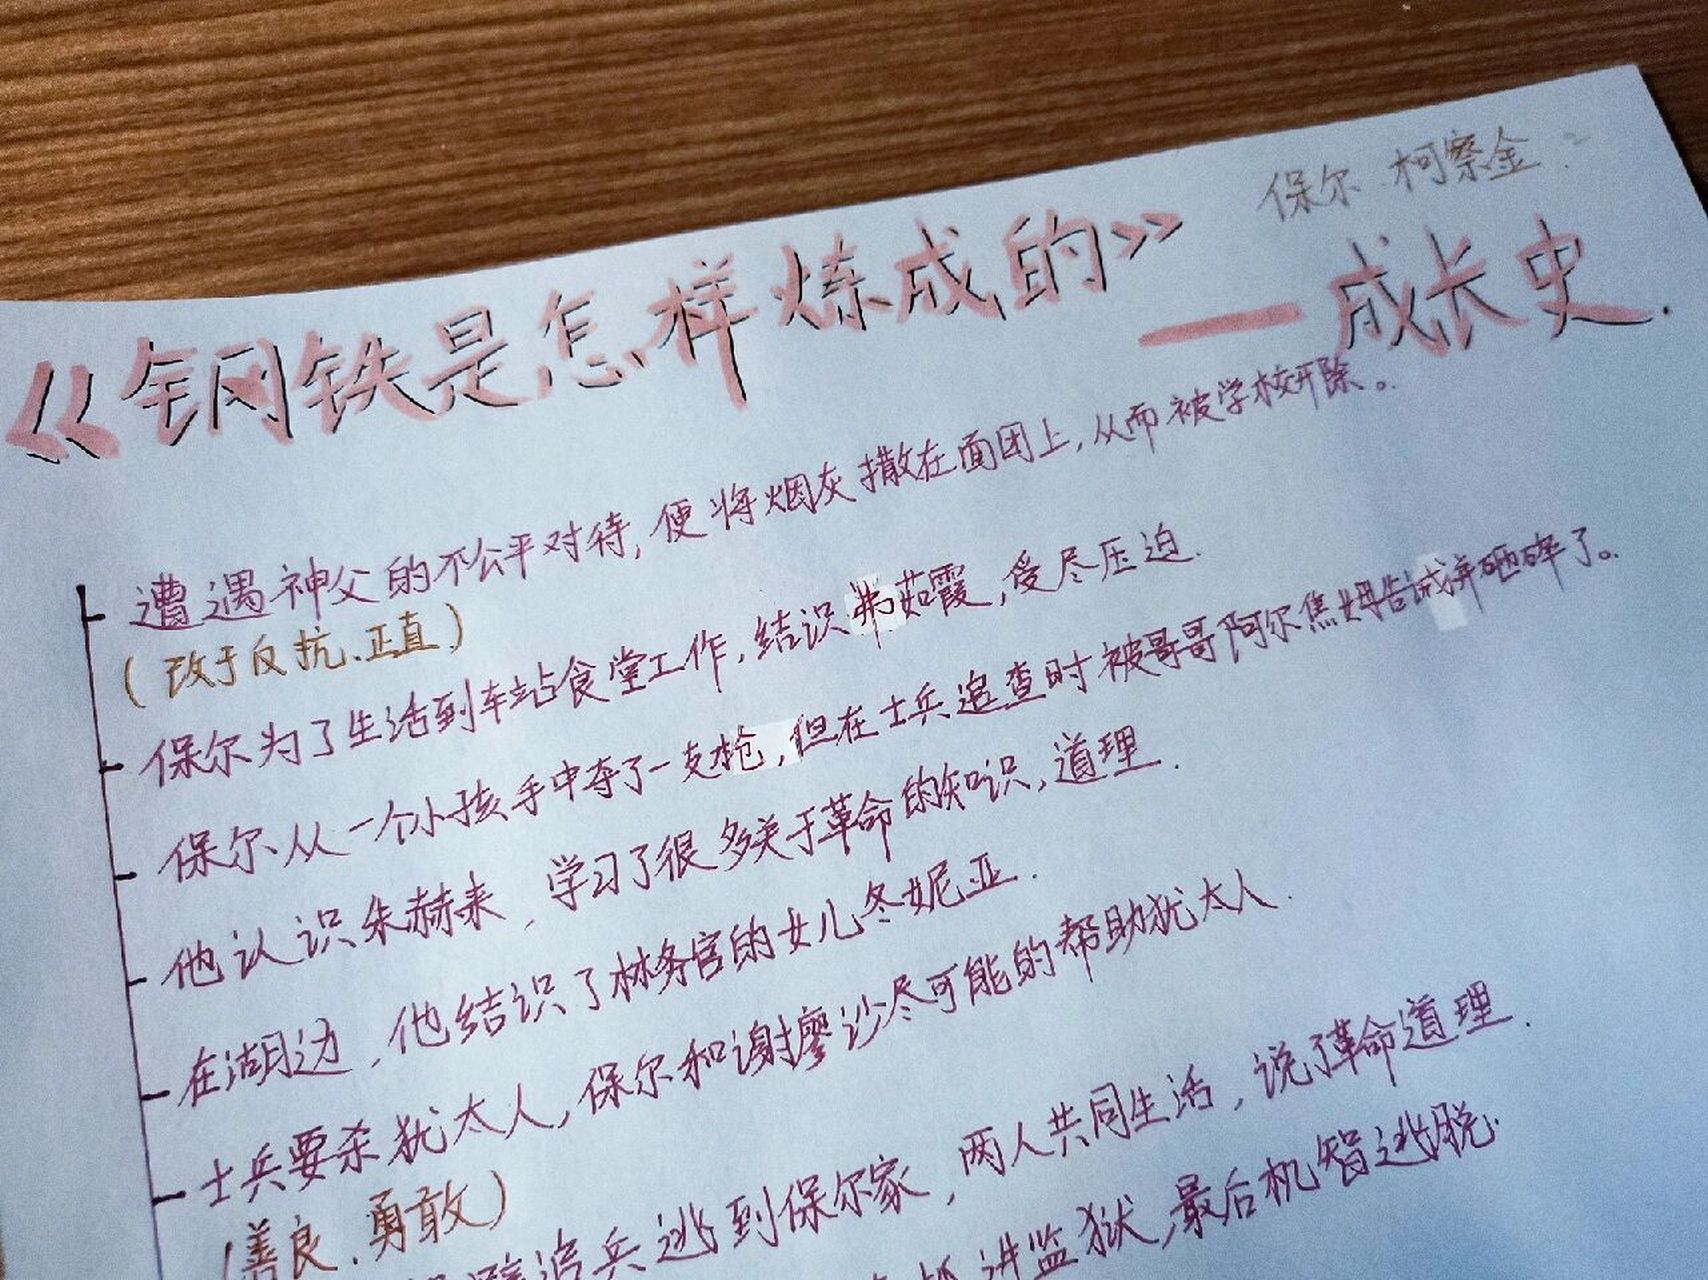 保尔·柯察金：
《钢铁是怎样炼成的》
——成长史.
遭遇神父的不公平对待，便将烟灰撒在面团上，从而被学校开除。
(改于反抗、正直)
保尔为了生活到车站食堂工作，结识弗茹霞，受尽压迫.
保尔从一个小孩手中夺了一支枪，但在士兵追查时被哥哥阿尔焦姆告诫并砸碎了。
他认识朱赫来，学习了很多关于革命的知识，道理.
在湖边，他结识了林务官的女儿冬妮亚.
士兵要杀犹太人，保尔和谢廖沙尽可能的帮助犹太人.
(善良、勇敢)
追兵逃到保尔家，两人共同生活，说了革命道理.
进监狱，最后机智逃脱.